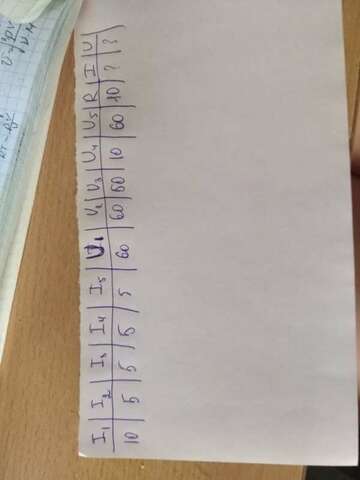 I₁ | I₂ | I₃ | I₄ | I₅ | U₁ | U₂ | U₃ | U₄ | U₅ | R | I | U
10 | 5 | 5 | 5 | 5 | 60 | 60 | 60 | 10 | 60 | 10 | ? | ?